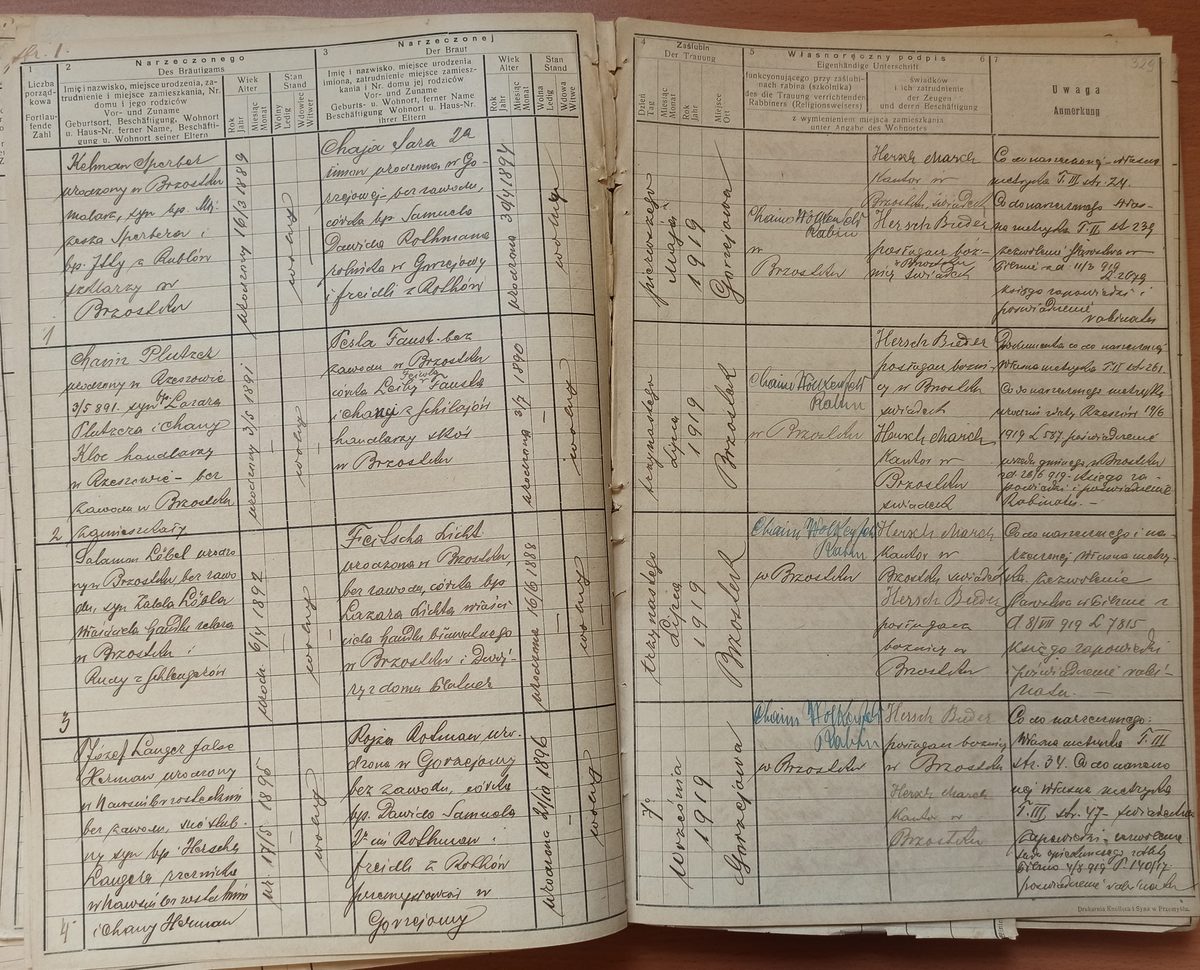 Str. 1.
Narzeczonego
Des Bräutigams
Narzeczonej
Der Braut
1
Liczba
porząd-
kowa
Fortlau-
fende
Zahl
2
Imię i nazwisko, miejsce urodzenia, za-
trudnienie i miejsce zamieszkania, Nr.
domu i jego rodziców
Vor- und Zuname
Geburtsort, Beschäftigung, Wohnort
u. Haus-Nr. ferner Name, Beschäfti-
gung u. Wohnort seiner Eltern
Wiek
Alter
Rok
Jahr
Miesiąc
Monat
Stan
Stand
Wolny
Ledig
Wdowiec
Witwer
3
Imię i nazwisko, miejsce urodzenia
imiona, zatrudnienie miejsce zamiesz-
kania i Nr. domu jej rodziców
Vor- und Zuname
Geburts- u. Wohnort u. Haus-Nr.
ihrer Eltern
Wiek
Alter
Rok
Jahr
Miesiąc
Monat
Stan
Stand
Wolna
Ledig
Wdowa
Witwe
4
Zaślubin
Der Trauung
Dzień
Tag
Miesiąc
Monat
Rok
Jahr
Miejsce
Ort
Własnoręczny podpis
Eigenhändige Unterschrift
5
funkcyonującego przy zaślubi-
nach rabina (szkolnika)
des die Trauung verrichtenden
Rabbiners (Religionsweisers)
6
świadków
i ich zatrudnienie
der Zeugen
und deren Beschäftigung
z wymienieniem miejsca zamieszkania
unter Angabe des Wohnortes
7
Uwaga
Anmerkung
1
Kelman Sperber
urodzony w Brzostku
malarz, syn bp. Moj-
żesza Sperbera i
bp. Itty z Rublów
szklarzy w
Brzostku
urodzony 16/3 1889
wolny
Chaja Sara 2a
imion urodzona w Go-
rzejowej bez zawodu,
córka bp. Samuela
Dawida Rothmana
rolnika w Gorzejowy
i Freidli z Rothów
urodzona 30/4 1894
wolny
pierwszego
Maja
1919
Gorzejowa
Chaim Wolkenfeld
Rabin
w
Brzostku
Hersch March
Kantor w
Brzostku świadek
Hersch Bieder
posługacz bóż-
nicy świadek
w Brzostku
Co do narzeczonej własna
metryka T. III str. 24.
Co do narzeczonego włas-
na metryka T. II st 239
zezwolenie Starostwa w
Pilźnie z d 11/3 919
L. 2079
księga zapowiedzi i
poświadczenie
rabinatu
2
Chaim Plutzer
urodzony w Rzeszowie
3/5 891. syn bp. Lazara
Plutzera i Chany
Kloc handlarzy
w Rzeszowie - bez
zawodu w Brzostku
zamieszkały
urodzony 3/5 1891
wolny
Pesla Faust bez
zawodu w Brzostku
córka Leiby Feiwla Fausta
i Chany z Schilajów
handlarzy skór
w Brzostku
urodzona 3/7 1890
wolny
trzynastego
Lipca
1919
Brzostek
Chaim Wolkenfeld
Rabin
w Brzostku
Hersch Bieder
posługacz bożni-
cy w Brzostku
świadek
Hersch March
Kantor w
Brzostku
świadek
Dokumenta co do narzeczonej
własna metryka T. II str. 261.
Co do narzeczonego metryka
urodzin z daty Rzeszów 17/6
1919 L 587 poświadczenie
urzędu gminnego w Brzostku
z d. 26/6 919 - księga za-
powiedzi i poświadczenie
Rabinatu. -
3
Salamon Löbel urodzo-
ny w Brzostku, bez zawo-
du, syn Natala Löbla
właściciela handlu żelaza
w Brzostku i
Rudy z Schlengerów
urodz. 6/4 1892
wolny
Feitscha Licht
urodzona w Brzostku
bez zawodu, córka bp
Lazara Lichta właści
ciela handlu bławatnego
w Brzostku i Dwoj-
ry z domu Platner
urodzona 16/6 1888
wolny
trzynastego
Lipca
1919
Brzostek
Chaim Wolkenfeld
Rabin
w Brzostku
Hersch March
Kantor w
Brzostku świadek
Hersch Bieder
posługacz
bożnicy w
Brzostku
Co do narzeczonego i na-
rzeczonej własna metry-
ka. Zezwolenie
Starostwa w Pilźnie z
d 8/VII 919 L 7815
księga zapowiedzi
i poświadczenie rabi-
natu. -
4
Józef Langer false
Herman urodzony
w Nawsiu brzosteckim
bez zawodu, nieślub-
ny syn bp. Herscha
Langera rzeźnika
w Nawsiu brzosteckim
i Chany Herman
ur. 17/5 1895
wolny
Rojza Rotman uro-
dzona w Gorzejowy
bez zawodu, córka
bp. Dawida Samuela
2ch im Rothman i
Freidli z Rothów
przemysłowców w
Gorzejowy
urodzona 21/10 1896
wolny
7go
Września
1919
Gorzejowa
Chaim Wolkenfeld
Rabin
w Brzostku
Hersch Bieder
posługacz bożnicy
w Brzostku
Hersch March
Kantor w
Brzostku
Co do narzeczonego:
Własna metryka T. III
str. 34. Co do narzeczo
nej własna metryka
T. III, str. 47 - świadectwo
zapowiedzi - zezwolenie
sądu opiekuńczego
Pilzno 4/8 919
poświadczenie rabinatu
Drukarnia Knollera i Syna w Przemyślu.